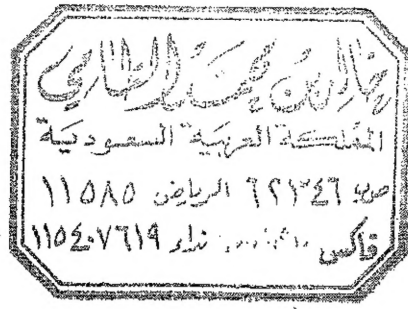 خالد بن محمد الطامي
المملكة العربية السعودية
ص.ب ٦٢٣٤٦ الرياض ١١٥٨٥
فاكس نداء ١١٥٤٠٧٦١٩